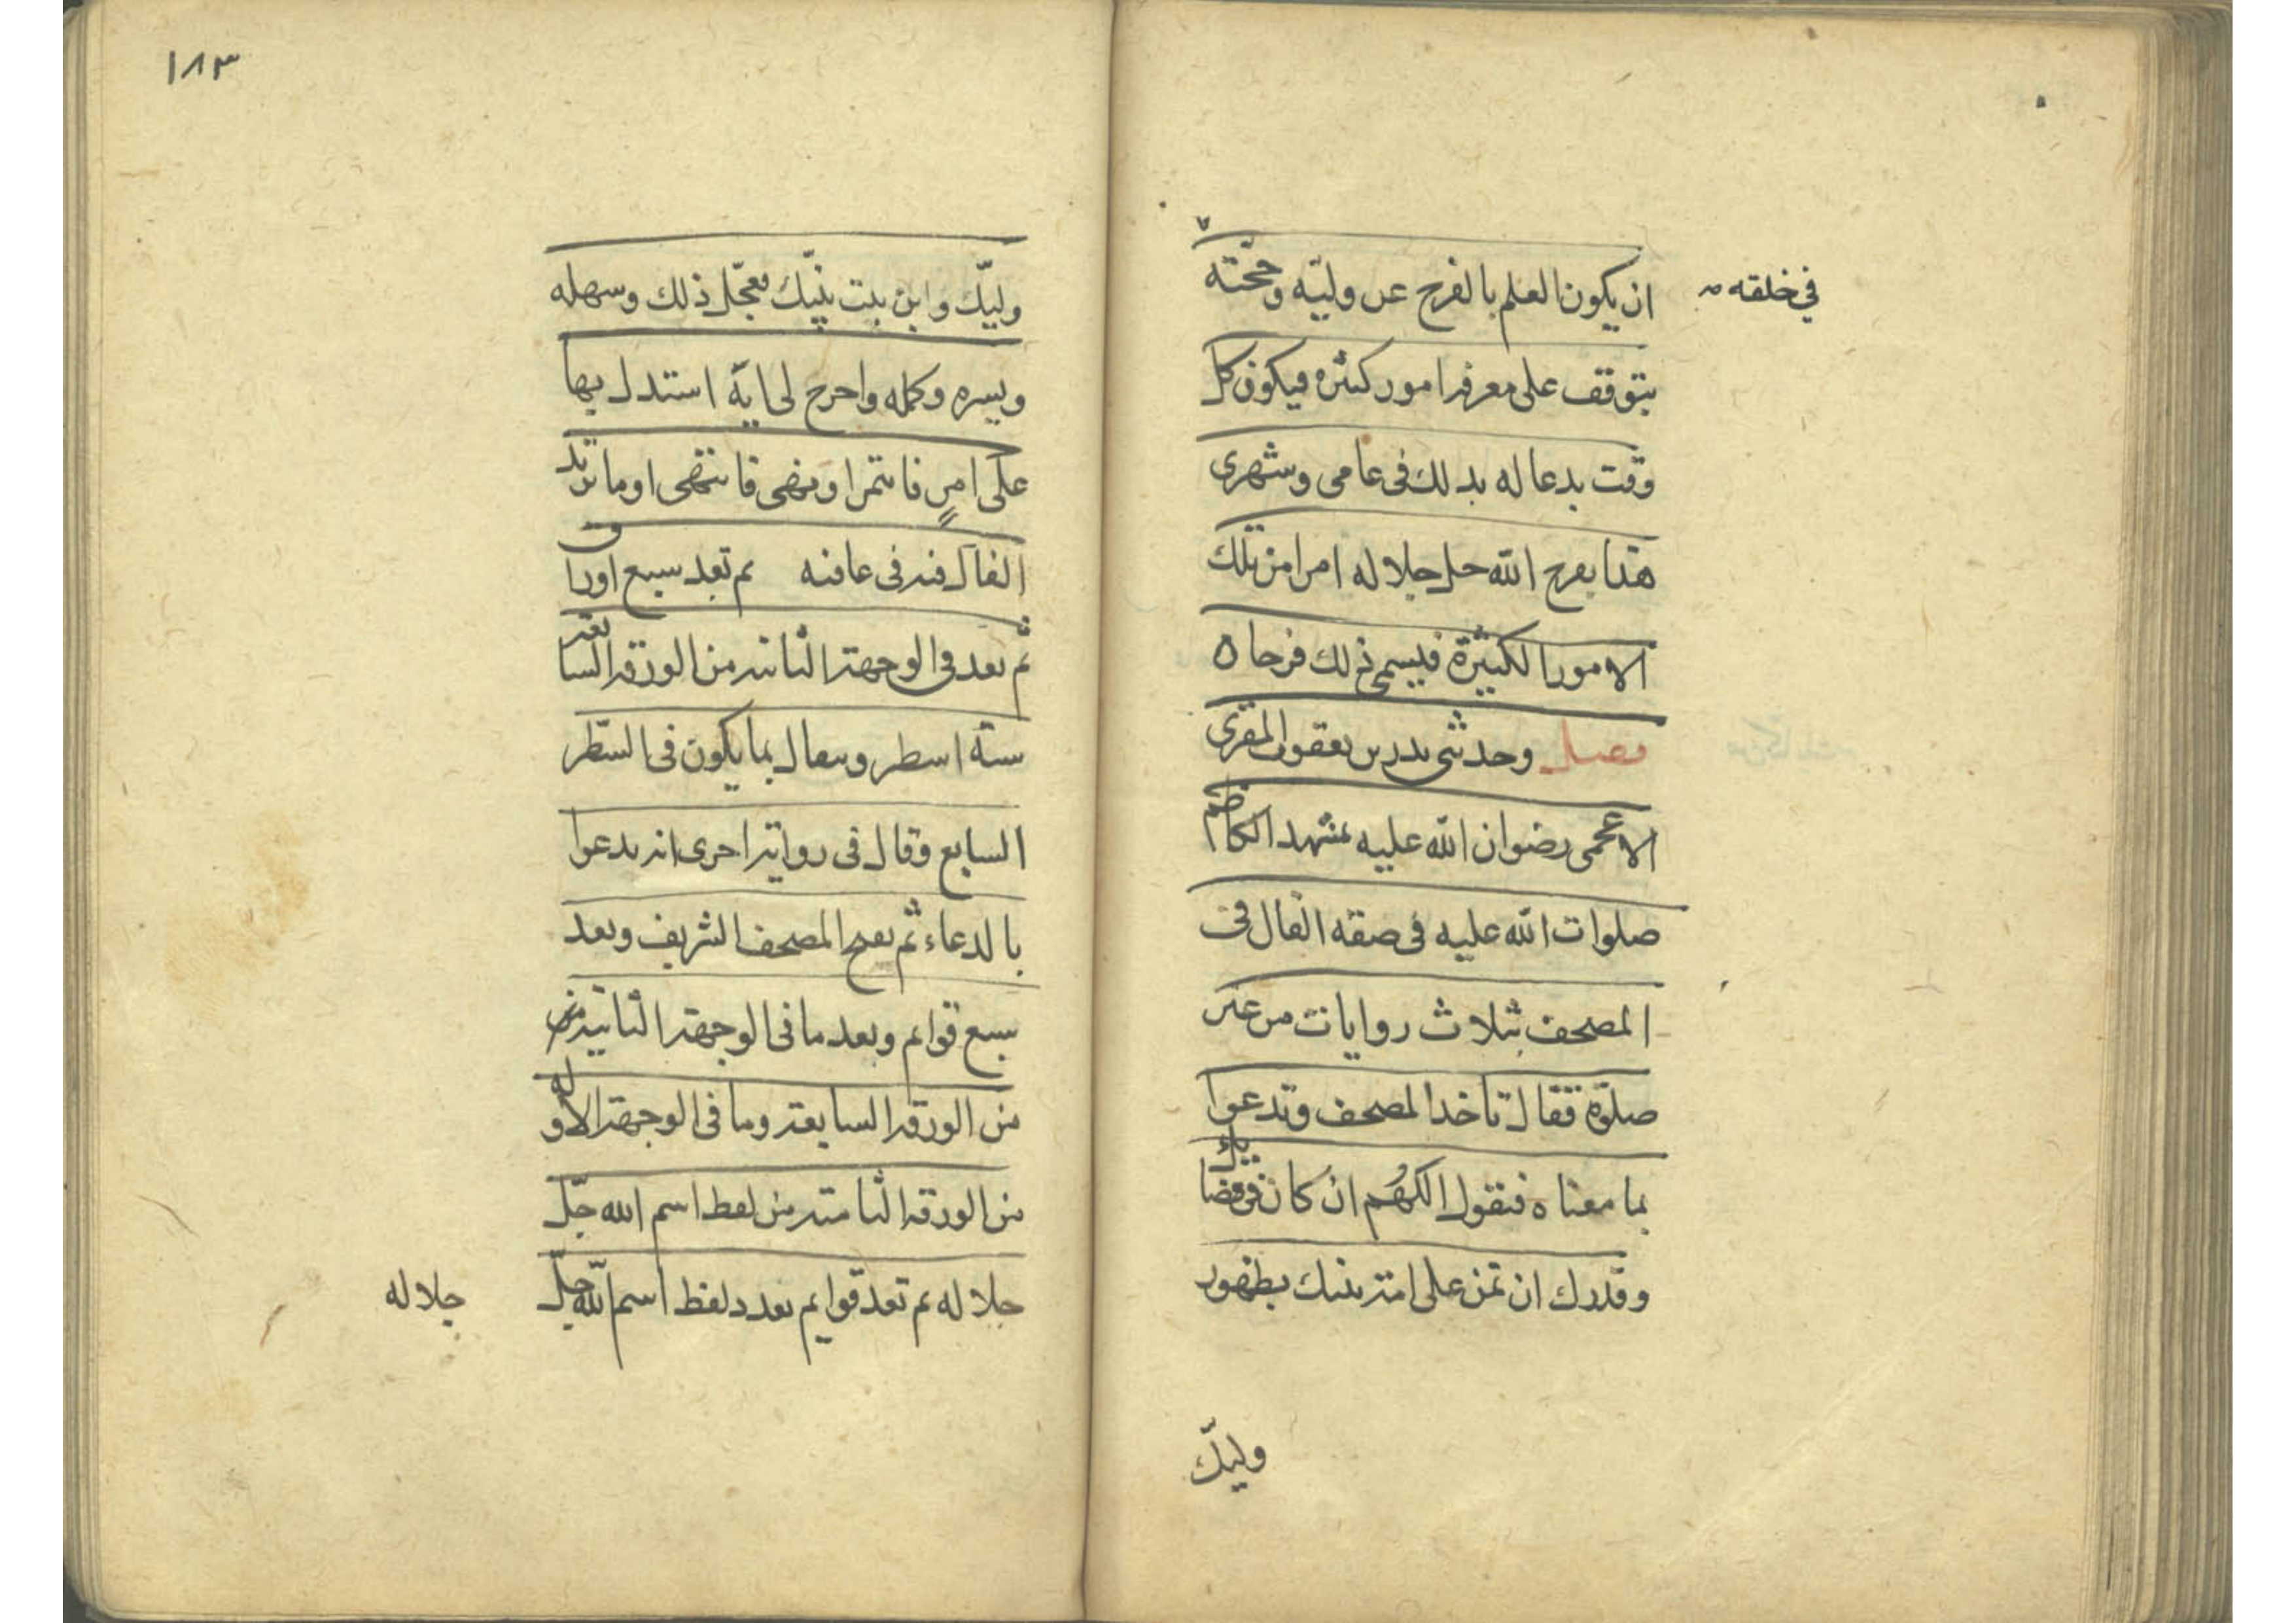 ان يكون العلم بالفرج عن وليّه وحجّته
في خلقه
يتوقف على معرفه امور كثيره فيكون كل
وقت يدعا له بذلك في عامى وشهرى
هذا يفرج الله جل جلاله امرا من تلك
الامور الكثيرة فيسمى ذلك فرجا ه
فصل وحدثنى بدر بن يعقوب المقرى
الاعجمى رضوان الله عليه بمشهد الكاظم
صلوات الله عليه فى صفه الفال فى
المصحف بثلاث روايات من غير
صلوة فقال تاخذ المصحف وتدعوا
بما معناه فتقول اللهم ان كان فى قضائك
وقدرك ان تمن على امة نبيك بظهور
وليك
١٨٣
وليّك وابن بنت نبيّك فعجّل ذلك وسهله
ويسره وكمله واخرج لى اية استدل بها
على امرٍ فائتمر او نهى فانتهى او ما تريد
الفال فيه فى عافيه ثم تعد سبع اوراق
ثم تعد فى الوجهة الثانيه من الورقه السابعه
ستة اسطر وتتفال بما يكون فى السّطر
السابع وقال فى رواية اخرى انه يدعوا
بالدعاء ثم يفتح المصحف الشريف ويعد
سبع قوايم ويعد ما فى الوجهة الثانية من
من الورقه السابعه وما فى الوجهة الاوله
من الورقه الثامنه من لفظ اسم الله جل
جلاله ثم تعد قوايم بعدد لفظ اسم الله جل
جلاله